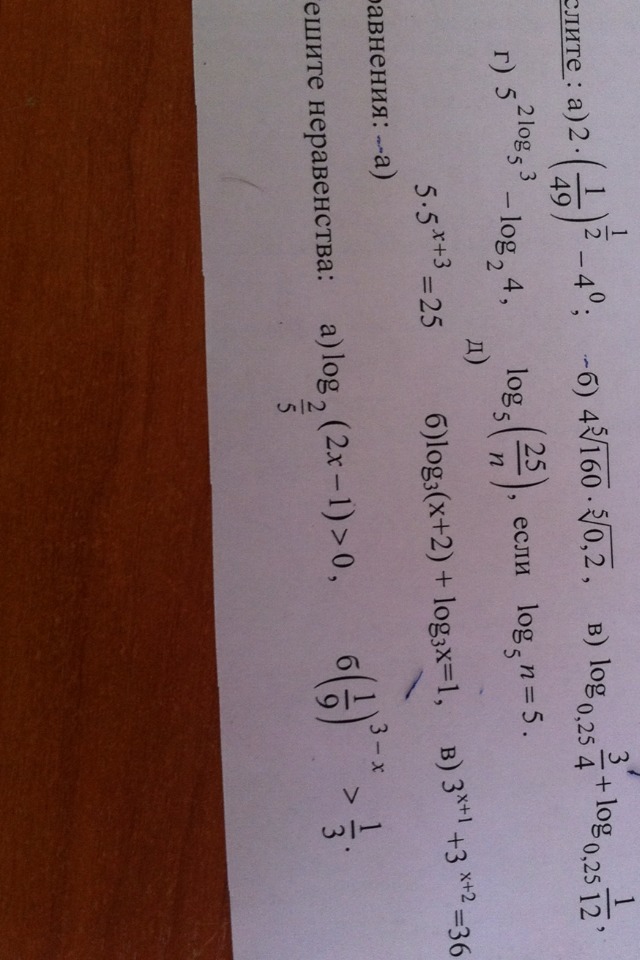 слите : а) 2 · (1/49)^(1/2) − 4^0 ; б) 4 ⁵√160 · ⁵√0,2 , в) log_0,25 3/4 + log_0,25 1/12 ,
г) 5^(2log_5 3) − log_2 4 , д) log_5 (25/n) , если log_5 n = 5 .
равнения: а) 5·5^(x+3) = 25 б) log_3(x+2) + log_3 x=1, в) 3^(x+1) +3^(x+2) =36
ешите неравенства: а) log_(2/5) (2x − 1) > 0 , б (1/9)^(3 − x) > 1/3 .